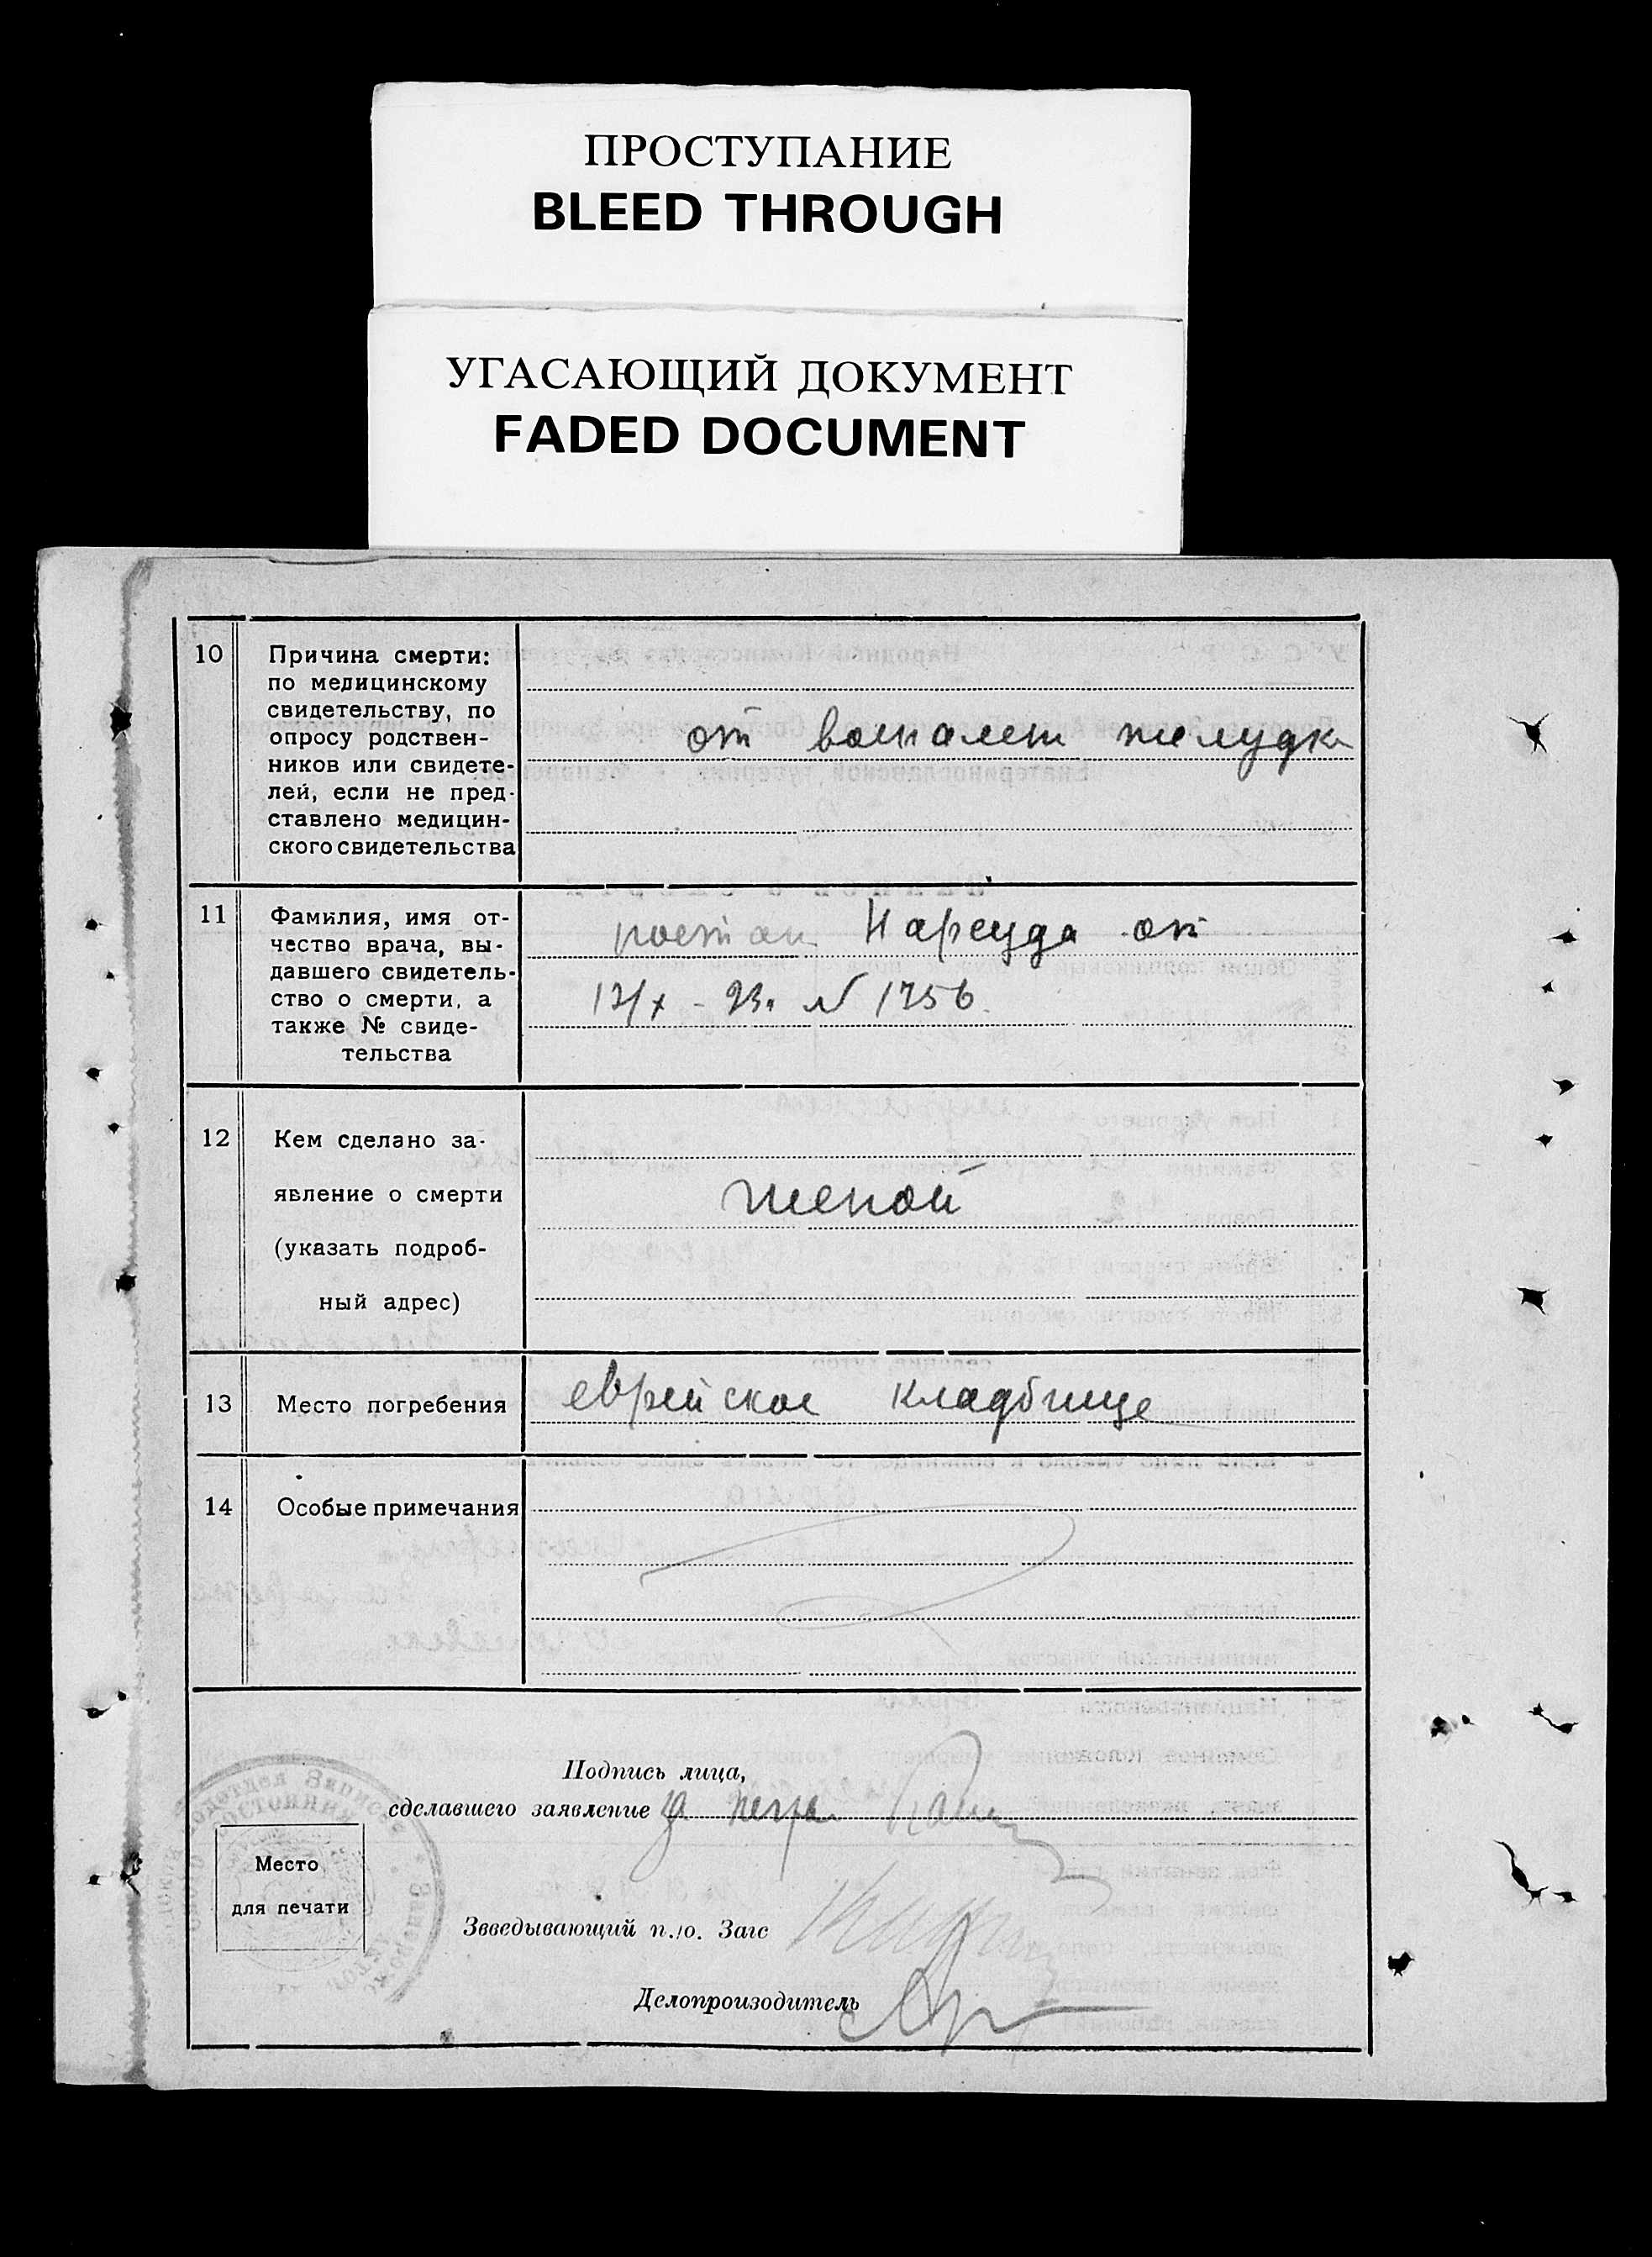 ПРОСТУПАНИЕ
BLEED THROUGH
УГАСАЮЩИЙ ДОКУМЕНТ
FADED DOCUMENT
10
Причина смерти:
по медицинскому
свидетельству, по
опросу родствен-
ников или свидете-
лей, если не пред-
ставлено медицин-
ского свидетельства
от воспален желудка
11
Фамилия, имя от-
чество врача, вы-
давшего свидетель-
ство о смерти, а
также № свиде-
тельства
Нарсуда от
12/x - 23. № 1756.
12
Кем сделано за-
явление о смерти
(указать подроб-
ный адрес)
женой
13
Место погребения
еврейское кладбище
14
Особые примечания
Подпись лица,
сделавшего заявление за негр.
Место
для печати
Звведывающий п./о. Загс
Делопроизодитель